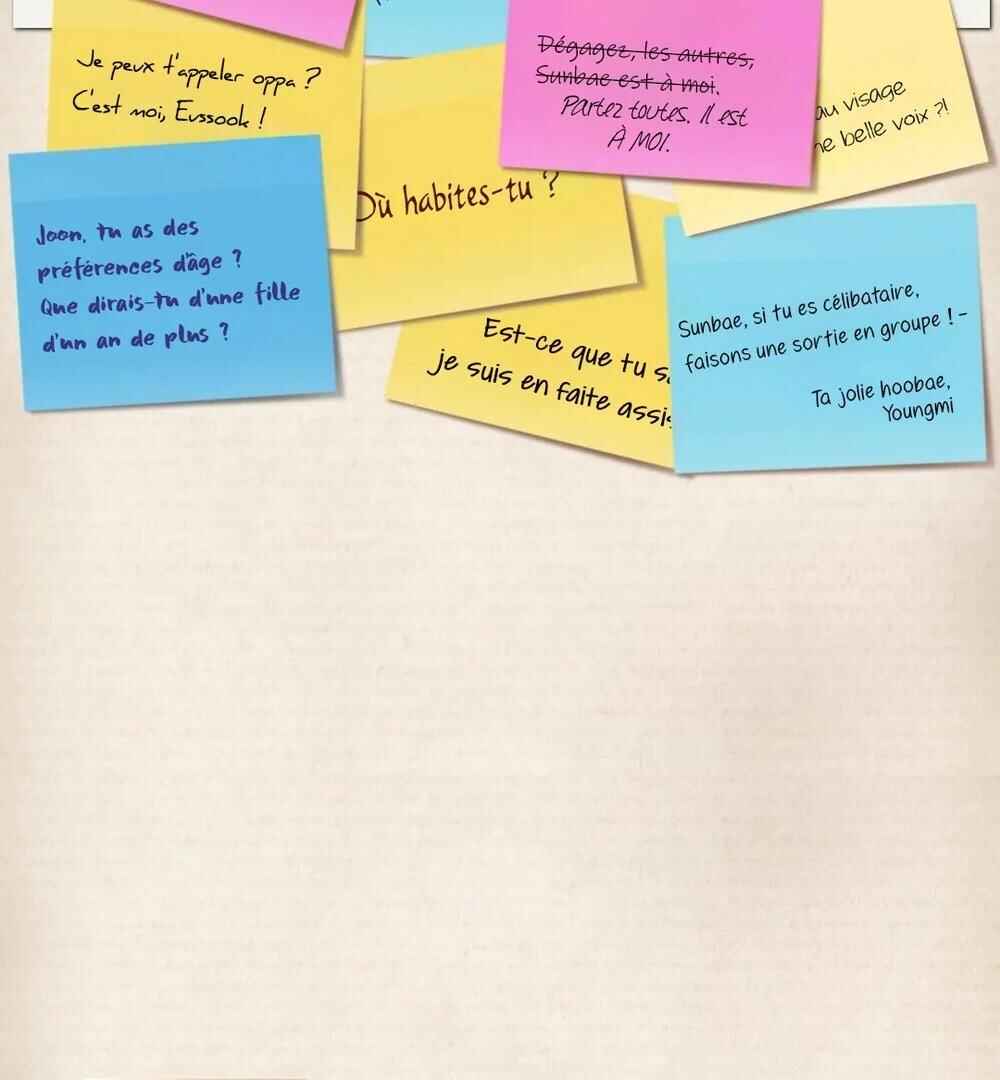 Je peux t'appeler oppa ?
C'est moi, Eussook !
Dégagez, les autres,
Sunbae est à moi.
Partez toutes. Il est
À MOI.
au visage
ne belle voix ?!
Où habites-tu ?
Joon, tu as des
préférences d'âge ?
Que dirais-tu d'une fille
d'un an de plus ?
Est-ce que tu
je suis en faite
Sunbae, si tu es célibataire,
faisons une sortie en groupe ! -
Ta jolie hoobae,
Youngmi